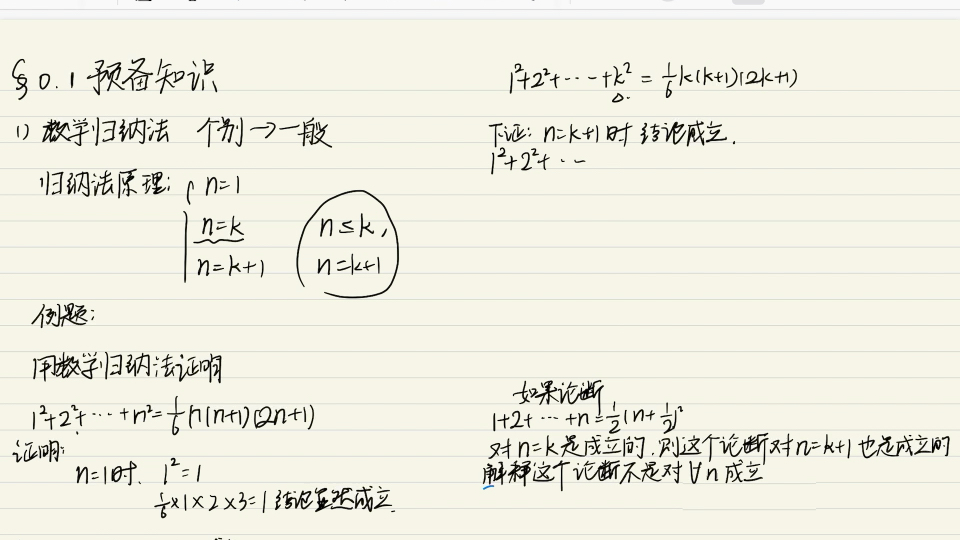 §0.1 预备知识
1) 数学归纳法 个别→一般
归纳法原理: n=1
n=k
n=k+1
n≤k,
n=k+1
例题:
用数学归纳法证明
1²+2²+⋯+n²=1/6 n(n+1)(2n+1)
证明:
n=1时. 1²=1
1/6×1×2×3=1 结论显然成立.
1²+2²+⋯+k²=1/6 k(k+1)(2k+1)
下证: n=k+1时 结论成立.
1²+2²+⋯
如果论断
1+2+⋯+n=1/2(n+1/2)²
对n=k是成立的.则这个论断对n=k+1也是成立的
解释这个论断不是对∀n成立